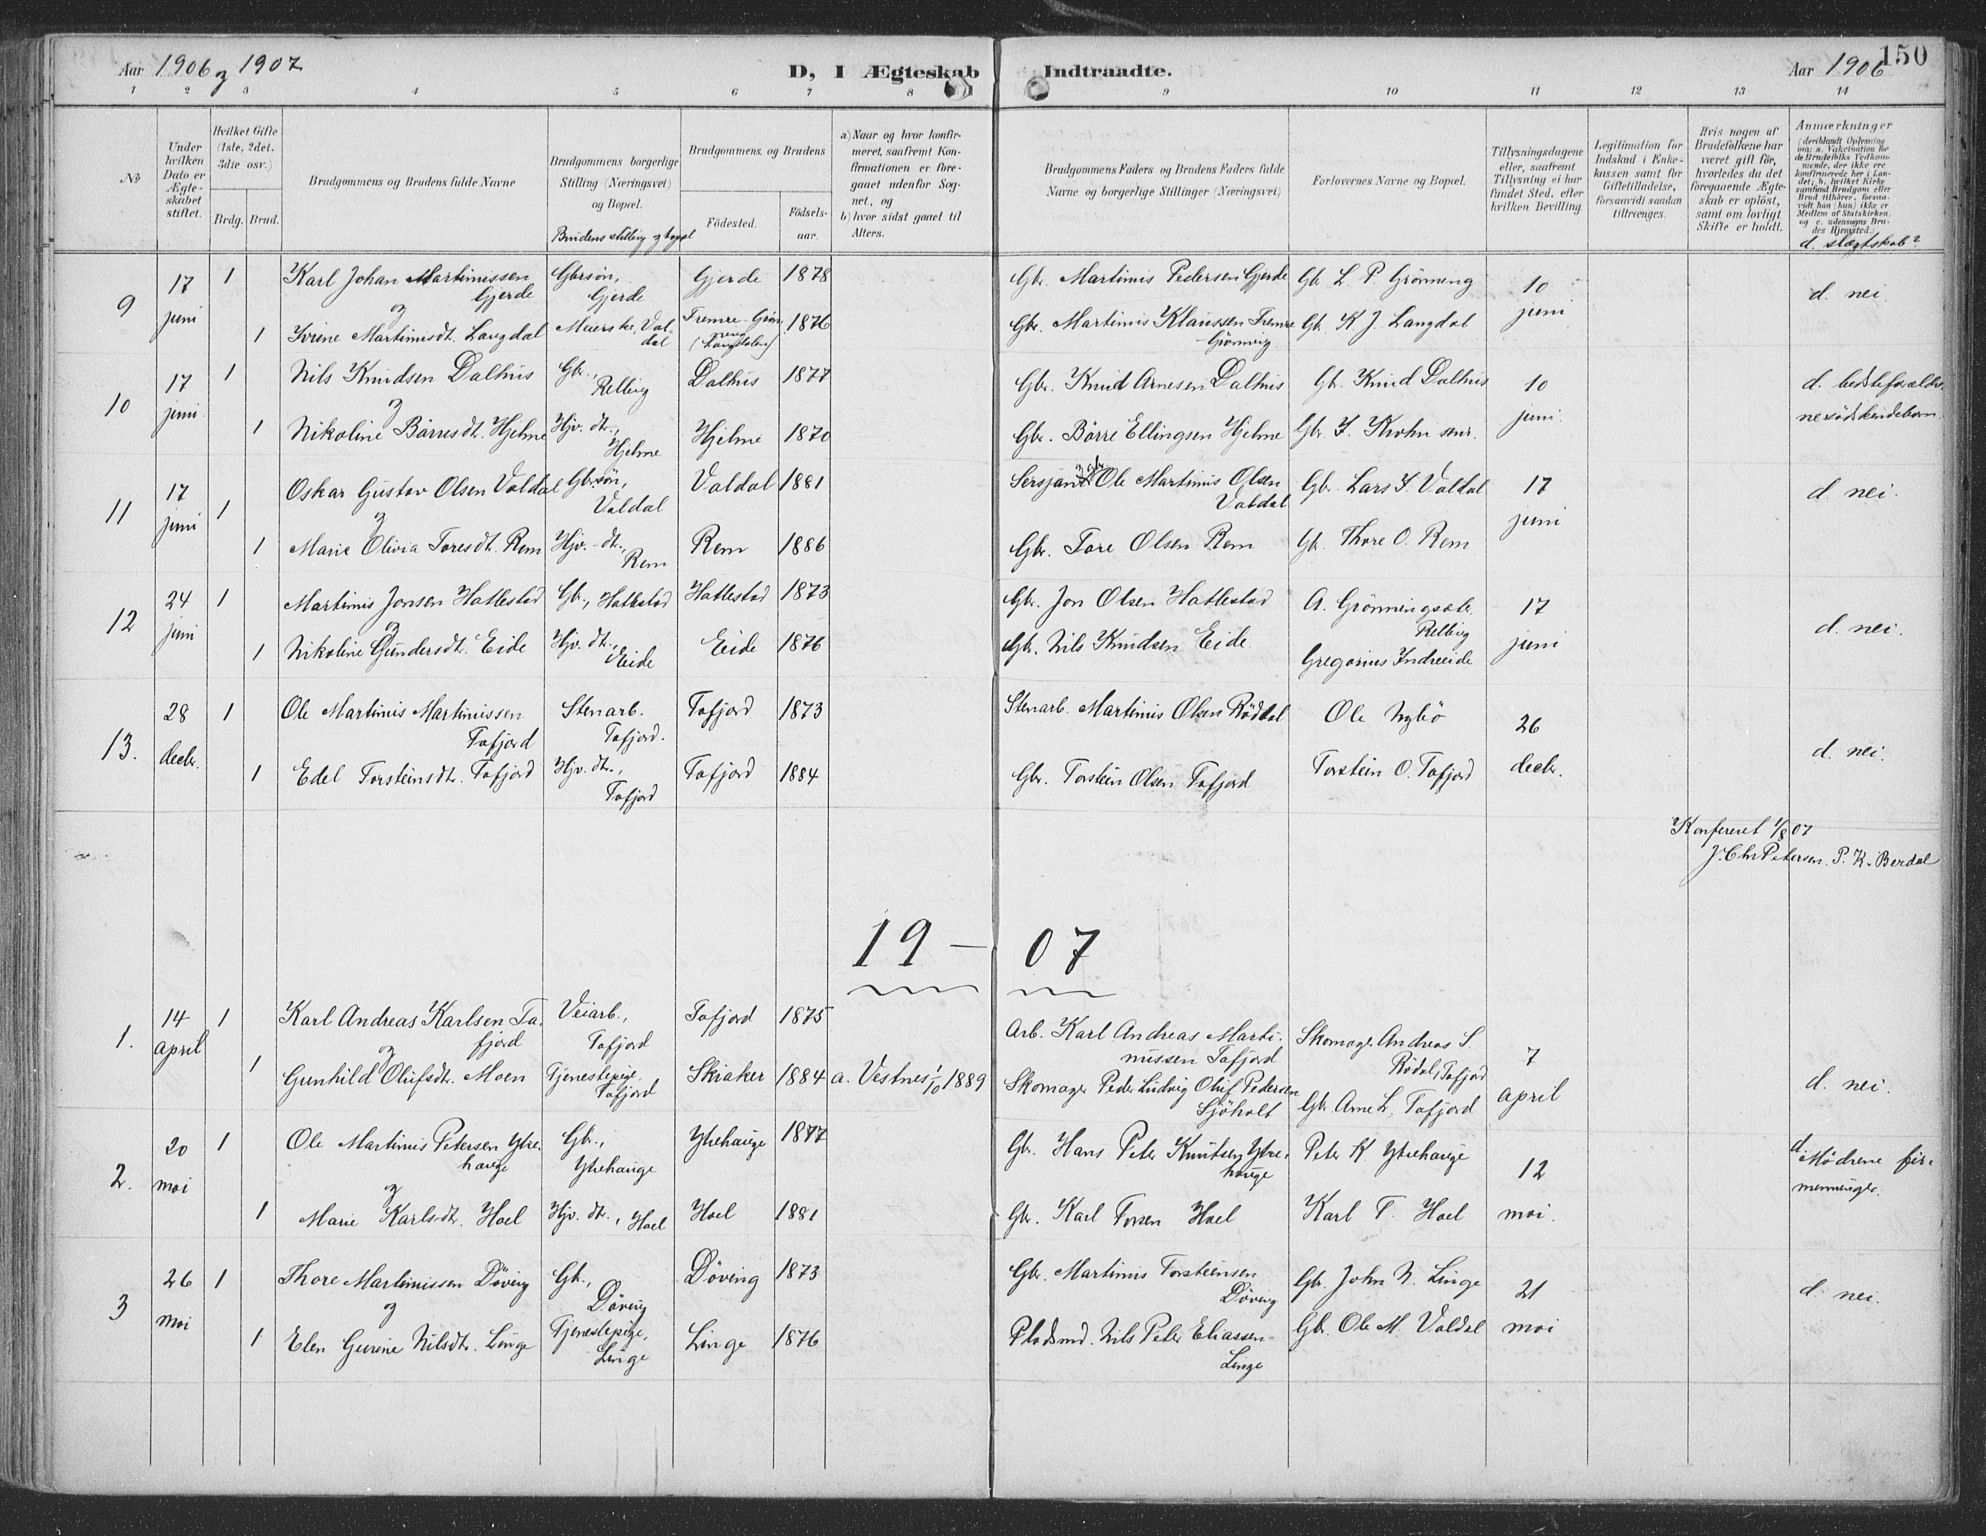 Aar 1906 og 1907
D, I Ægteskab Indtraadte.
Aar 1906
150
1 2 3 4 5 6 7 8 9 10 11 12 13 14
No
Under hvilken Dato er Ægteskabet stiftet.
Hvilket Gifte (1ste, 2det, 3die osv.)
Brdg. Brud.
Brudgommens og Brudens fulde Navne
Brudgommens borgerlige Stilling (Næringsvei) og Bopæl.
Brudens stilling og bopæl
Brudgommens og Brudens
Fødested.
Fødselsaar.
a) Naar og hvor konfirmeret, saafremt Konfirmationen er foregaaet udenfor Sognet, og
b) hvor sidst gaaet til Alters.
Brudgommens Faders og Brudens Faders fulde Navne og borgerlige Stillinger (Næringsvei)
Forlovernes Navne og Bopæl.
Tillysningsdagene eller, saafremt Tillysning ei har fundet Sted, efter hvilken Bevilling
Legitimation for Indskud i Enkekassen samt for Giftetilladelse, forsaavidt saadan tiltrænges.
Hvis nogen af Brudefolkene har været gift før, hvorledes da det foregaaende Ægteskab er opløst, samt om lovligt Skifte er holdt.
Anmærkninger
(deriblandt Oplysning om: a. Vakcination for de Brudefolks Vedkommende, der ikke ere konfirmerede her i Landet; b. hvilket Kirkesamfund Brudgom eller Brud tilhører, forsaavidt han (hun) ikke er Medlem af Statskirken, og c. udensogns Brudes Hjemsted.)
d. slægtskab?
9 17 juni 1 Karl Johan Martinussen Gjerde Gbrsøn, Gjerde Gjerde 1878 Gbr. Martinus Pedersen Gjerde Gb. L. P. Grønning 10 juni d. nei.
og
1 Ivrine Martinusdt. Langdal Meierske, Valdal Fremre-Grønning (Langdalen) 1876 Gbr. Martinus Klaussen Fremre Grønning Gb. K. J. Langdal
10 17 juni 1 Nils Knudsen Dalhus Gbr., Relling Dalhus 1877 Gbr. Knud Arnesen Dalhus Gb. Knud Dalhus 10 juni d. bedsteforældrene sødskendebørn.
og
1 Nikoline Børresdt. Hjelme Hjv. dt., Hjelme Hjelme 1870 Gbr. Børre Ellingsen Hjelme Gbr. I. Krohn senr.
11 17 juni 1 Oskar Gustav Olsen Valdal Gbrsøn, Valdal Valdal 1881 Sersjant og gbr. Ole Martinus Olsen Valdal Gbr. Lars I. Valdal 17 juni d. nei.
og
1 Marie Olivia Toresdt. Rem Hjv.-dt., Rem Rem 1886 Gbr. Tore Olsen Rem Gb. Thore O. Rem
12 24 juni 1 Martinus Jonsen Hatlestad Gb., Hatlestad Hatlestad 1873 Gbr. Jon Olsen Hatlestad A. Grønningsæter Relling 17 juni d. nei.
og
1 Nikoline Gundersdt. Eide Hjv. dt., Eide Eide 1876 Gb. Nils Knudsen Eide Gregorius Indreeide
13. 28 decbr. 1 Ole Martinus Martinussen Tafjord Stenarb. Tafjord. Tafjord 1873 Stenarb. Martinus Olsen Røddal Ole Nybø 26 decbr. d. nei.
1 Edel Torsteinsdt. Tafjord Hjv. dt., Tafjord Tafjord 1884 Gbr. Torstein Olsen Tafjord Torstein O. Tafjord
Konfereret 1/8 07
J. Chr Petersen. P. K. Berdal
19 — 07
1. 14 april 1 Karl Andreas Karlsen Tafjord Veiarb., Tafjord Tafjord 1875 Arb. Karl Andreas Martinussen Tafjord Skomager Andreas S. Rødal, Tafjord 7 april d. nei.
og
1 Gunhild Olufsdt. Moen Tjenestepige Tafjord Skiaker 1884 a. Vestnes 1/10 1889 Skomager Peder Ludvig Oluf Pedersen Sjøholt Gbr Arne L. Tafjord
2. 20 mai 1 Ole Martinus Petersen Ytrehauge Gbr., Ytrehauge Ytrehauge 1877 Gbr. Hans Peter Knutsen Ytrehauge Peter K Ytrehauge 12 mai. d. Mødrene firmenninger.
og
1 Marie Karlsdtr. Hoel Hjv. dt., Hoel Hoel 1881 Gbr. Karl Torsen Hoel Karl T. Hoel
3 26 mai 1 Thore Martinussen Døving Gb., Døving Døving 1873 Gbr. Martinus Torsteinsen Døving Gbr. John N. Linge 21 mai d. nei.
og
1 Elen Gurine Nilsdtr. Linge Tjenestepige, Linge Linge 1876 Pladsmd. Nils Peter Eliassen Linge Gbr. Ole M. Valdal